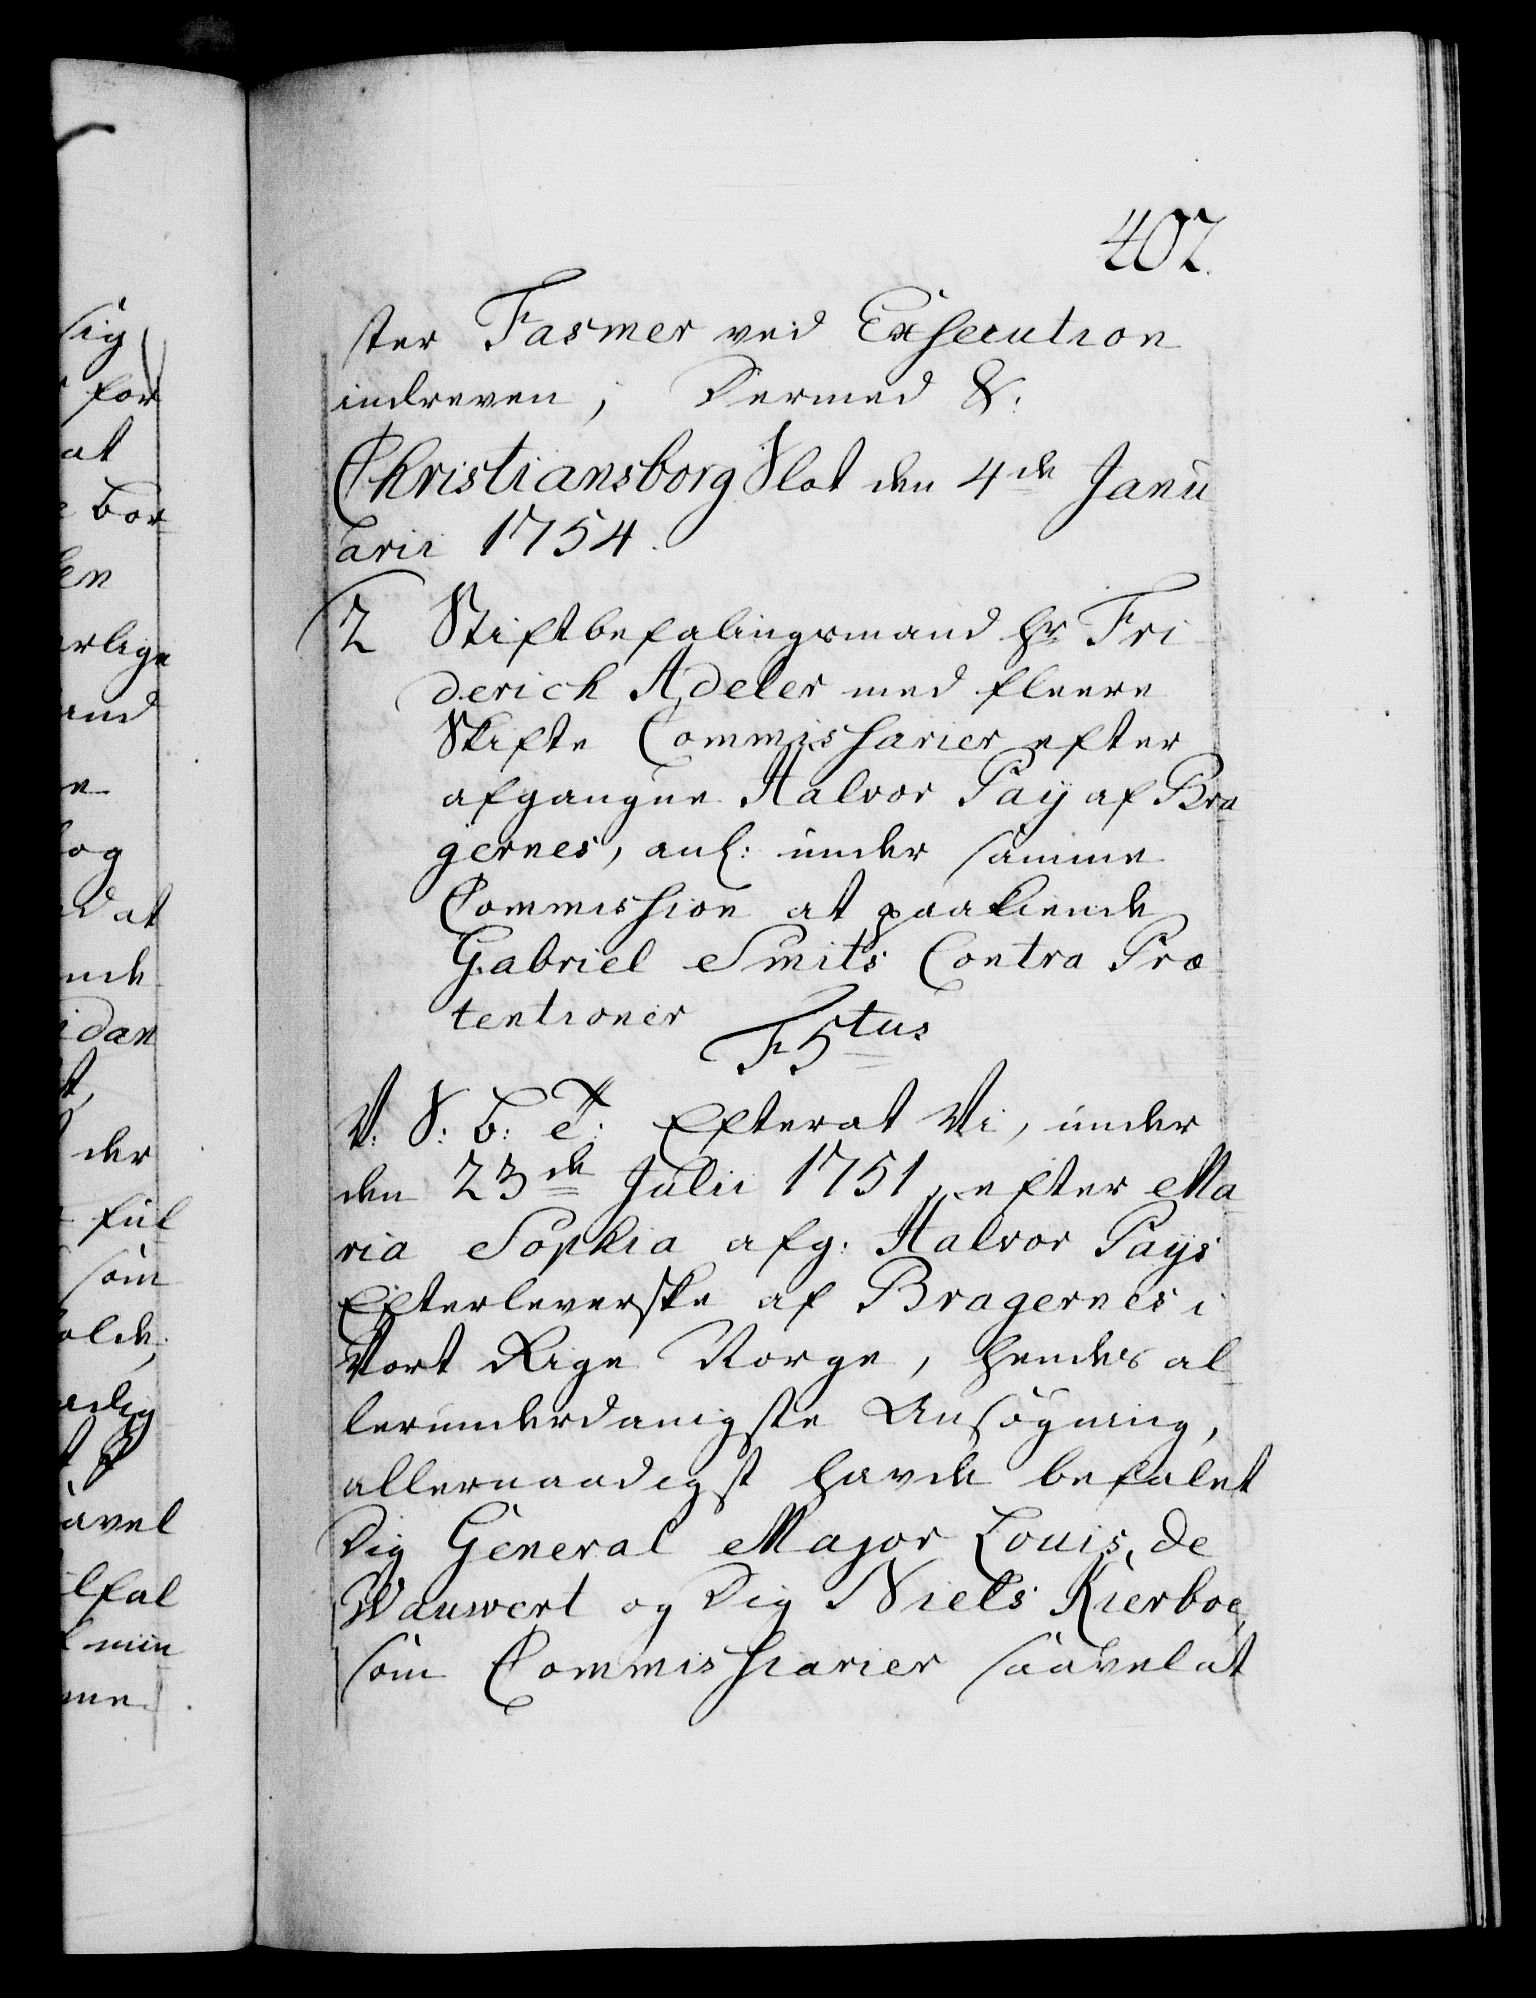 407.
ster Fasmer ved Exsecution
indreven; Dermed &.
Christiansborg Slot den 4de Janu
arii 1754.
2 Stiftbefalingsmand Hr Fri
derich Adeler med fleere
Skifte Commissarier efter
afgangne Halvor Paÿ af Bra
gernes, anl: under samme
Commission at paakiende
Gabriel Smits Contra Præ
tentioner
F 5tus
V. S: b: T: Efterat Vi, under
den 23de Julii 1751, efter Ma
ria Sophia afg: Halvor Paÿs
Efterleverske af Bragernes i
Vort Rige Norge, hendes al
lerunderdanigste Ansøgning,
allernaadigst havde befalet
Dig General Major Louis de
Wauwert og Dig Niels Kierboe,
som Commissiarier saavel at
sig
for
at
bor
en
rlige
and
e
og
dat
nde
idan
t,
der
ful
som
olde,
adig
avel
lfal
min
me.